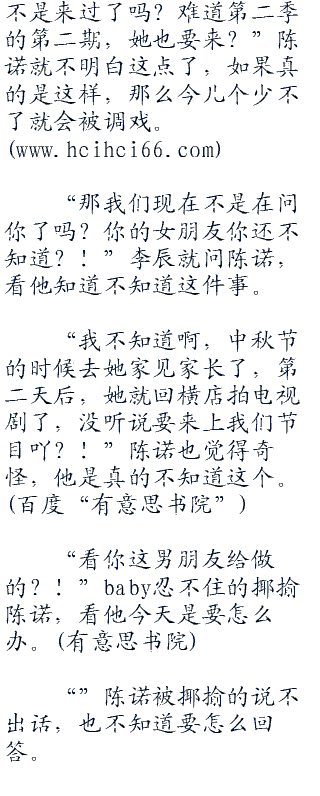 不是来过了吗？难道第二季
的第二期，她也要来？”陈
诺就不明白这点了，如果真
的是这样，那么今儿个少不
了就会被调戏。
(www.hcihci66.com)
“那我们现在不是在问
你了吗？你的女朋友你还不
知道？！”李辰就问陈诺，
看他知道不知道这件事。
“我不知道啊，中秋节
的时候去她家见家长了，第
二天后，她就回横店拍电视
剧了，没听说要来上我们节
目吖？！”陈诺也觉得奇
怪，他是真的不知道这个。
(百度“有意思书院”)
“看你这男朋友给做
的？！”baby忍不住的揶揄
陈诺，看他今天是要怎么
办。(有意思书院)
“”陈诺被揶揄的说不
出话，也不知道要怎么回
答。